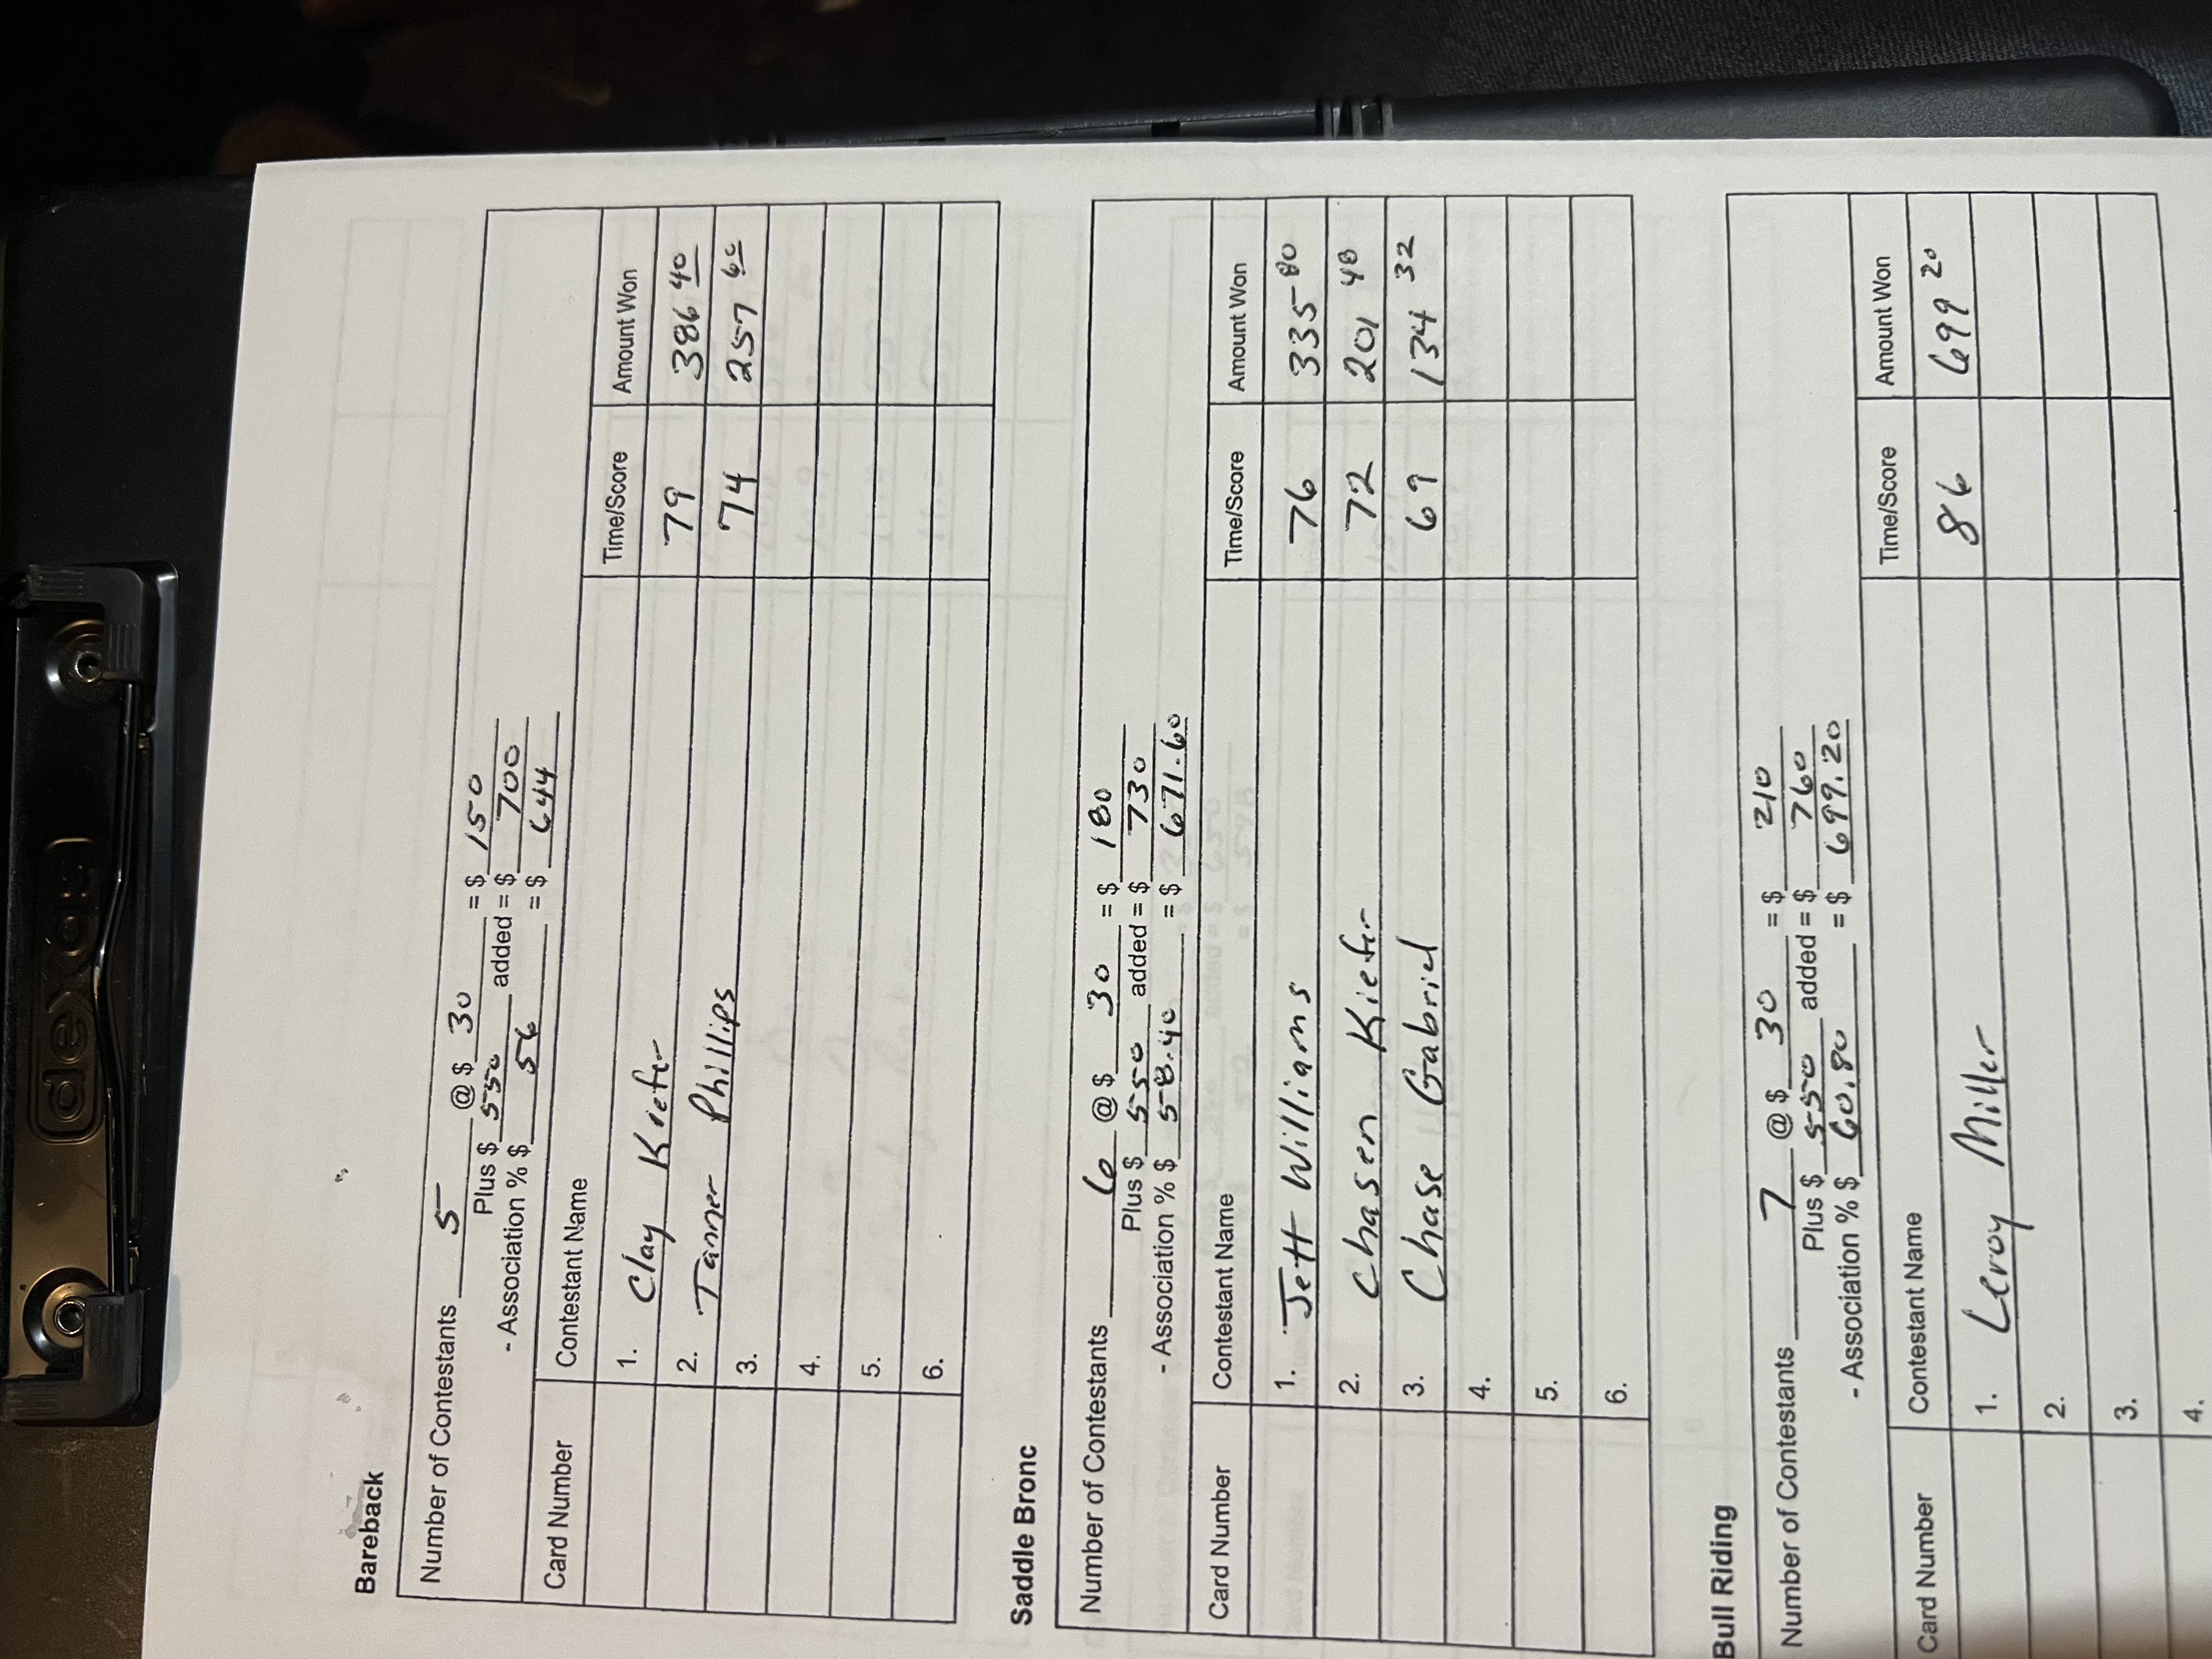 dexas
Bareback
Number of Contestants 5 @ $ 30 = $ 150
Plus $ 550 added = $ 700
- Association % $ 56 = $ 644
Card Number Contestant Name Time/Score Amount Won
1. Clay Kiefer 79 386 40
2. Tanner Phillips 74 257 60
3.
4.
5.
6.
Saddle Bronc
Number of Contestants 6 @ $ 30 = $ 180
Plus $ 550 added = $ 730
- Association % $ 58.40 = $ 671.60
Card Number Contestant Name Time/Score Amount Won
1. Jett Williams 76 335 80
2. Chasen Kiefer 72 201 48
3. Chase Gabriel 69 134 32
4.
5.
6.
Bull Riding
Number of Contestants 7 @ $ 30 = $ 210
Plus $ 550 added = $ 760
- Association % $ 60.80 = $ 699.20
Card Number Contestant Name Time/Score Amount Won
1. Leroy Miller 86 699 20
2.
3.
4.